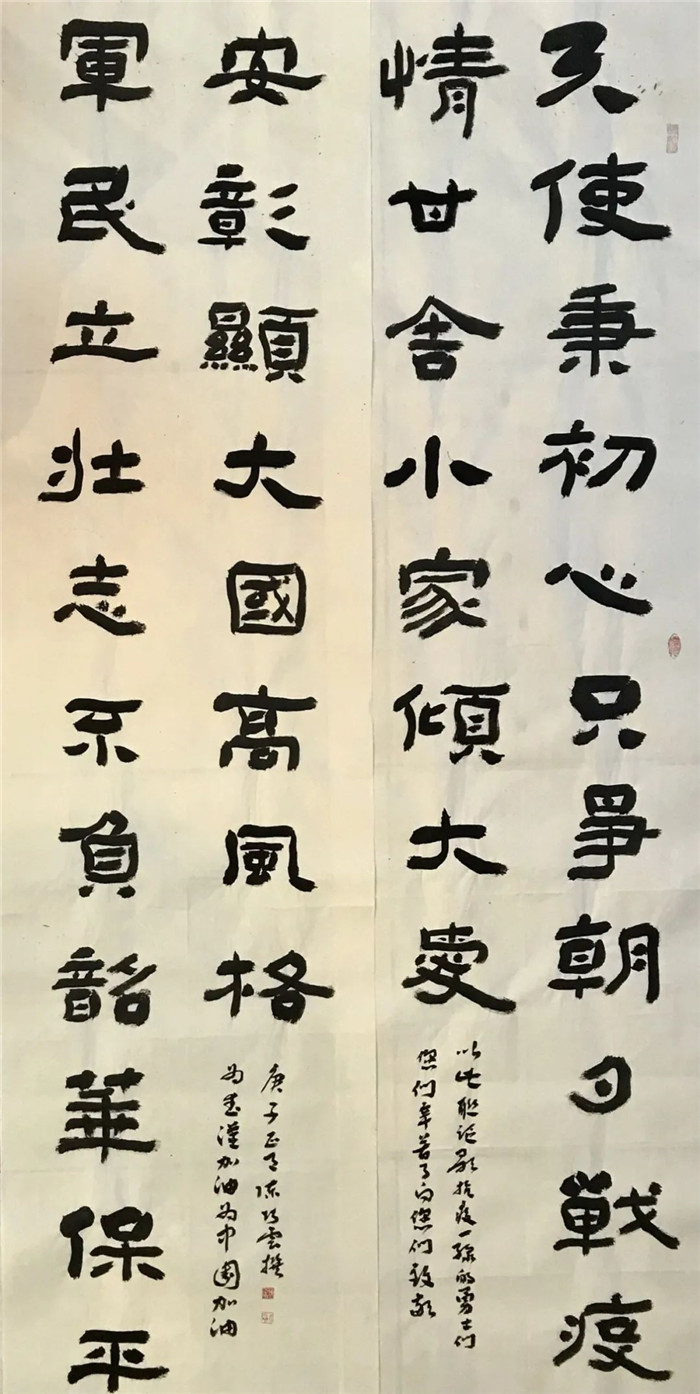 天使秉初心只爭朝夕戰疫
情甘舍小家傾大愛
以此联 抗疫一线的勇士们
您们辛苦了向您们致敬
軍民立壮志不負韶華保平
安彰顯大國高風格
庚子正月陈 雲撰
为武漢加油为中國加油